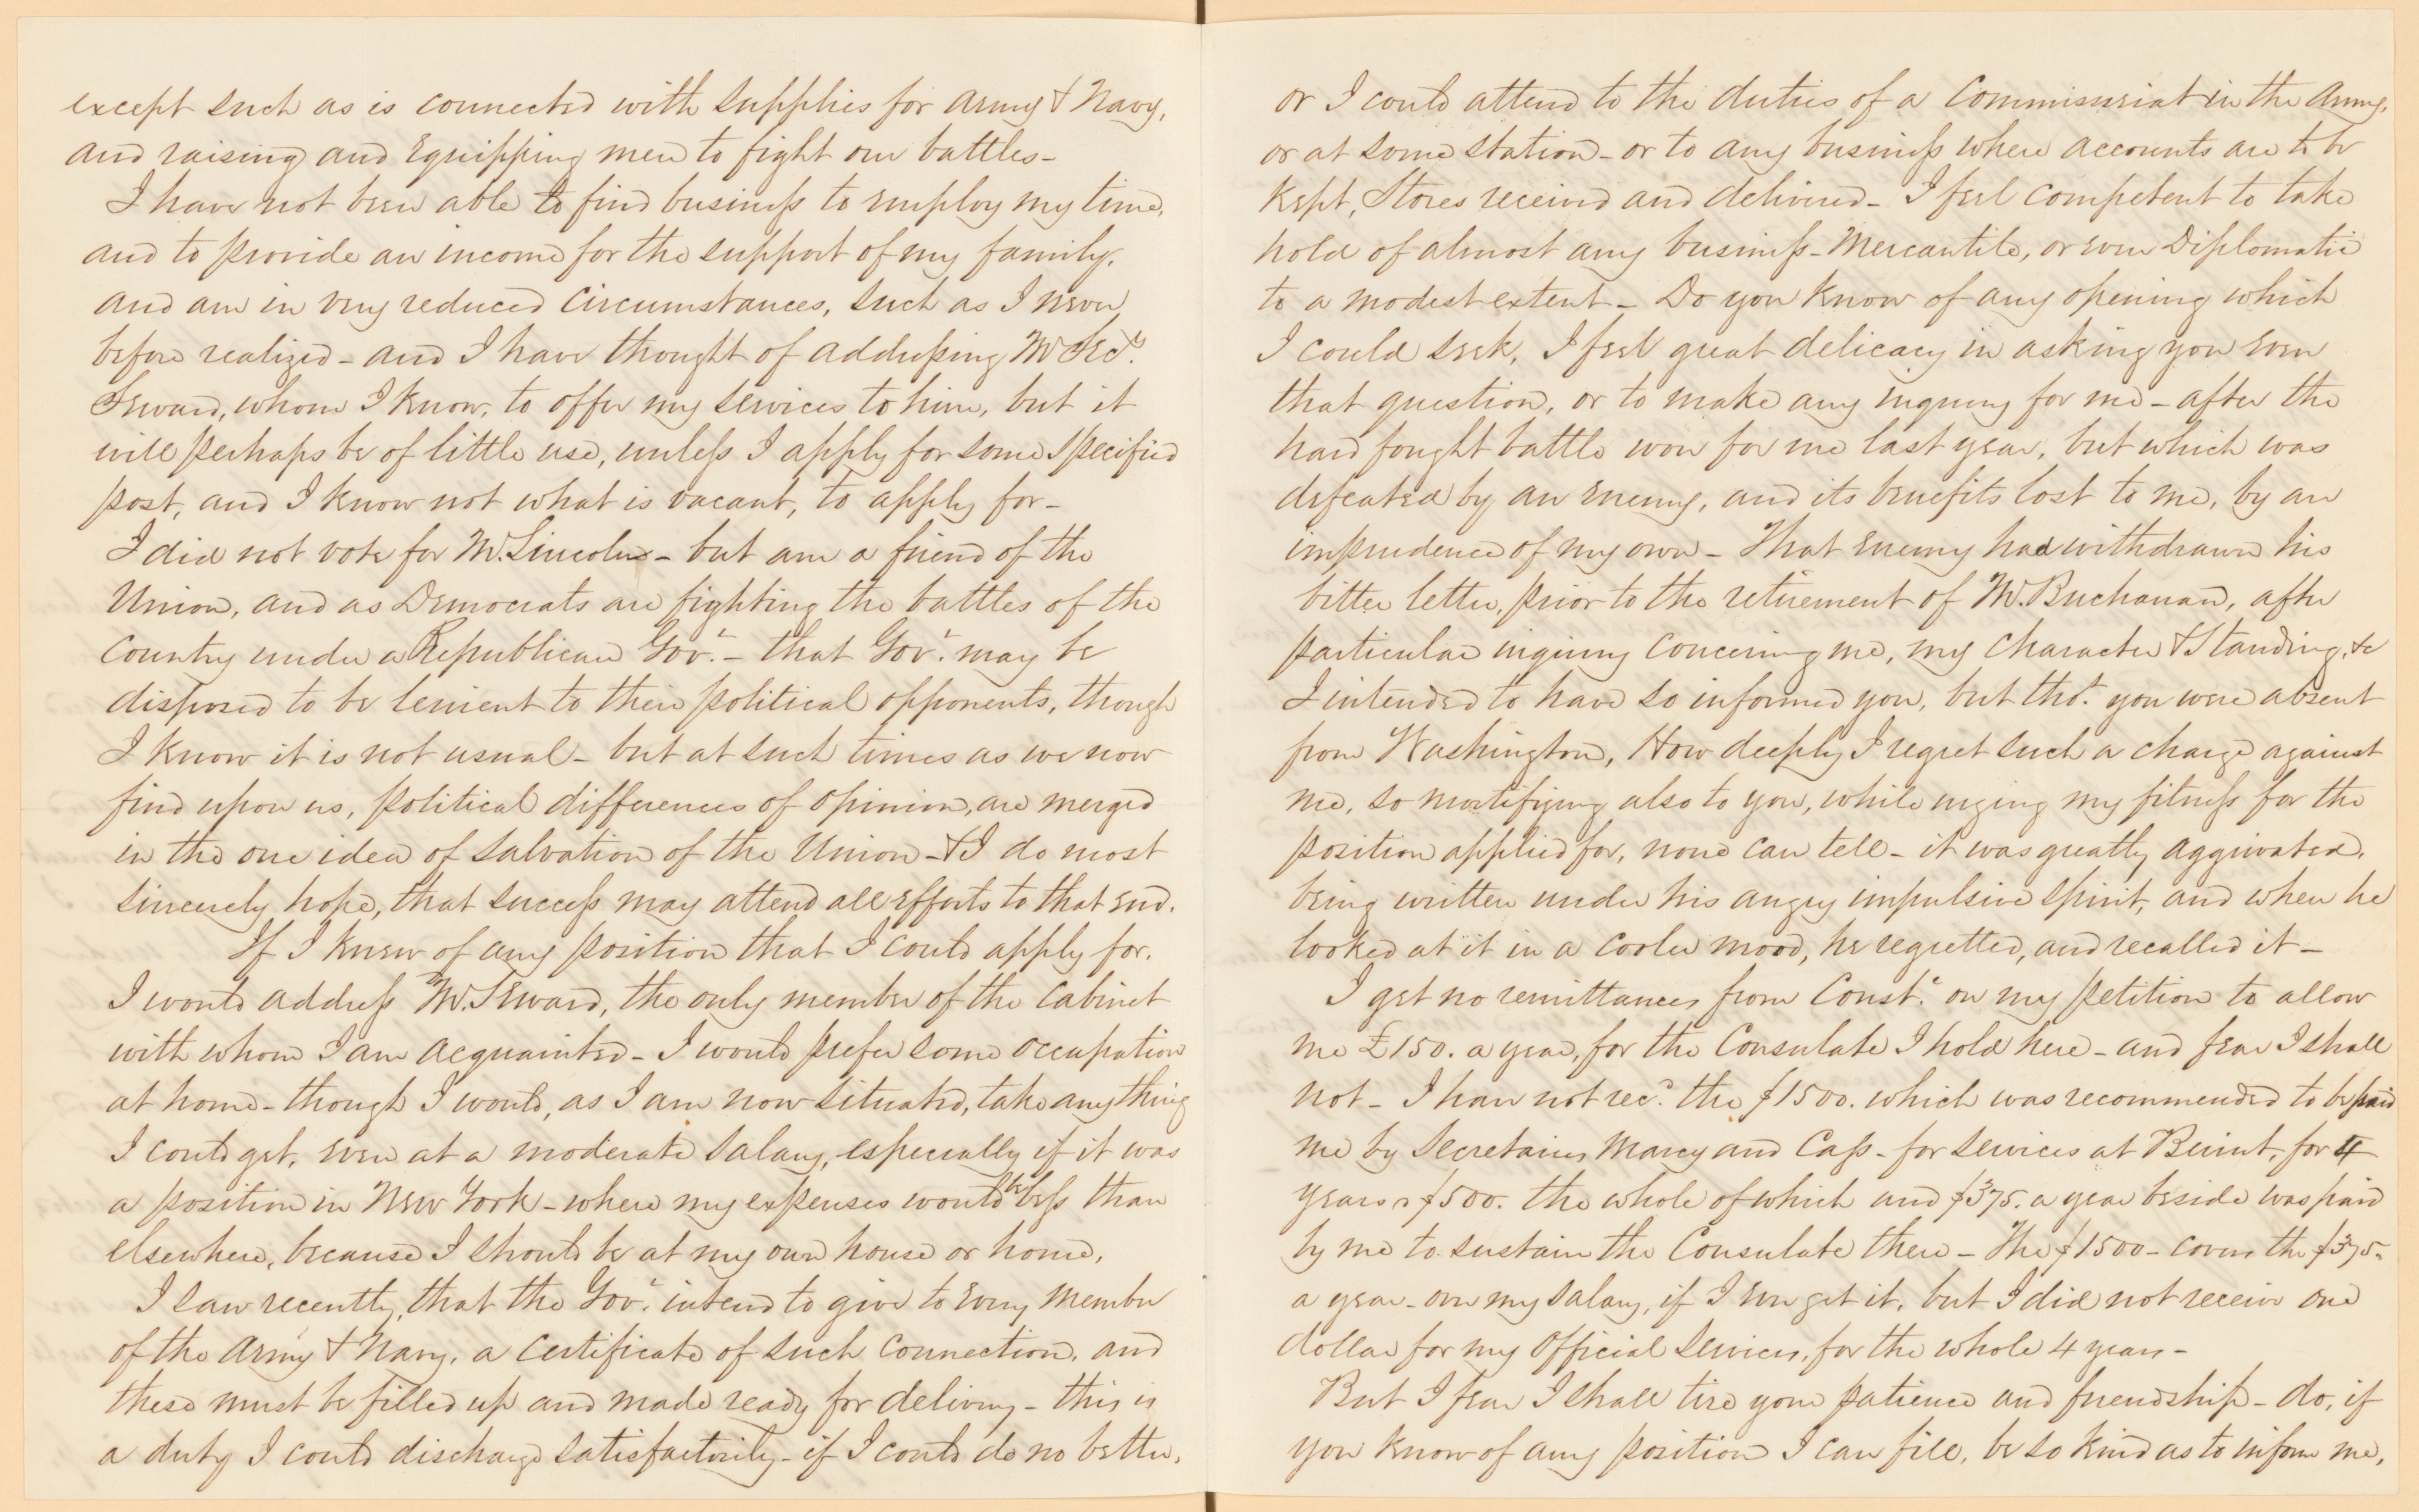 except such as is connected with supplies for Army & Navy,
and raising and Equipping men to fight our battles-
I have not been able to find business to employ my time,
and to provide an income for the support of my family,
and am in very reduced circumstances, such as I never
before realized - and I have thought of addressing Mr Secy.
Seward, whom I know, to offer my services to him, but it
will perhaps be of little use, unless I apply for some specified
post, and I know not what is vacant, to apply for-
I did not vote for Mr. Lincoln - but am a friend of the
Union, and as Democrats are fighting the battles of the
Country under a Republican Govt. - that Govt. may be
disposed to be lenient to their political opponents, though
I know it is not usual - but at such times as we now
find upon us, political differences of opinion, are merged
in the one idea of salvation of the Union - & I do most
sincerely hope, that success may attend all efforts to that end.
If I knew of any position that I could apply for,
I would address Mr. Seward, the only member of the Cabinet
with whom I am acquainted - I would prefer some occupation
at home - though I would, as I am now situated, take any thing
I could get, even at a moderate salary, especially if it was
a position in New York - where my expenses would be less than
elsewhere, because I should be at my own house or home,
I saw recently, that the Govt. intend to give to every member
of the Army & Navy, a Certificate of such connection, and
these must be filled up and made ready for delivery - this is
a duty I could discharge satisfactorily - if I could do no better,
or I could attend to the duties of a Commissariat in the Army,
or at some station - or to any business where accounts are to be
kept, Stores received and delivered - I feel competent to take
hold of almost any business - Mercantile, or even Diplomatic
to a modest extent - Do you know of any opening which
I could seek, I feel great delicacy in asking you even
that question, or to make any inquiry for me - after the
hard fought battle won for me last year, but which was
defeated by an enemy, and its benefits lost to me, by an
imprudence of my own - That enemy had withdrawn his
bitter letter, prior to the retirement of Mr. Buchanan, after
particular inquiry concerning me, my character & standing, &c
I intended to have so informed you, but tho't you were absent
from Washington, How deeply I regret such a charge against
me, so mortifying also to you, while urging my fitness for the
position applied for, none can tell - it was greatly aggrivated,
being written under his angry impulsive spirit, and when he
looked at it in a cooler mood, he regretted, and recalled it -
I get no remittances from Conste. on my petition to allow
me £150. a year, for the Consulate I hold here - and fear I shall
not - I have not recd. the $1500. which was recommended to be paid
me by Secretaries Marcy and Cass - for services at Beirut, for 4
years $500. the whole of which and $375. a year beside was paid
by me to sustain the Consulate there - The $1500 - covers the $375-
a year - over my salary, if I ever get it, but I did not receive one
dollar for my Official Services, for the whole 4 years -
But I fear I shall tire your patience and friendship - do, if
you know of any position I can fill, be so kind as to inform me,